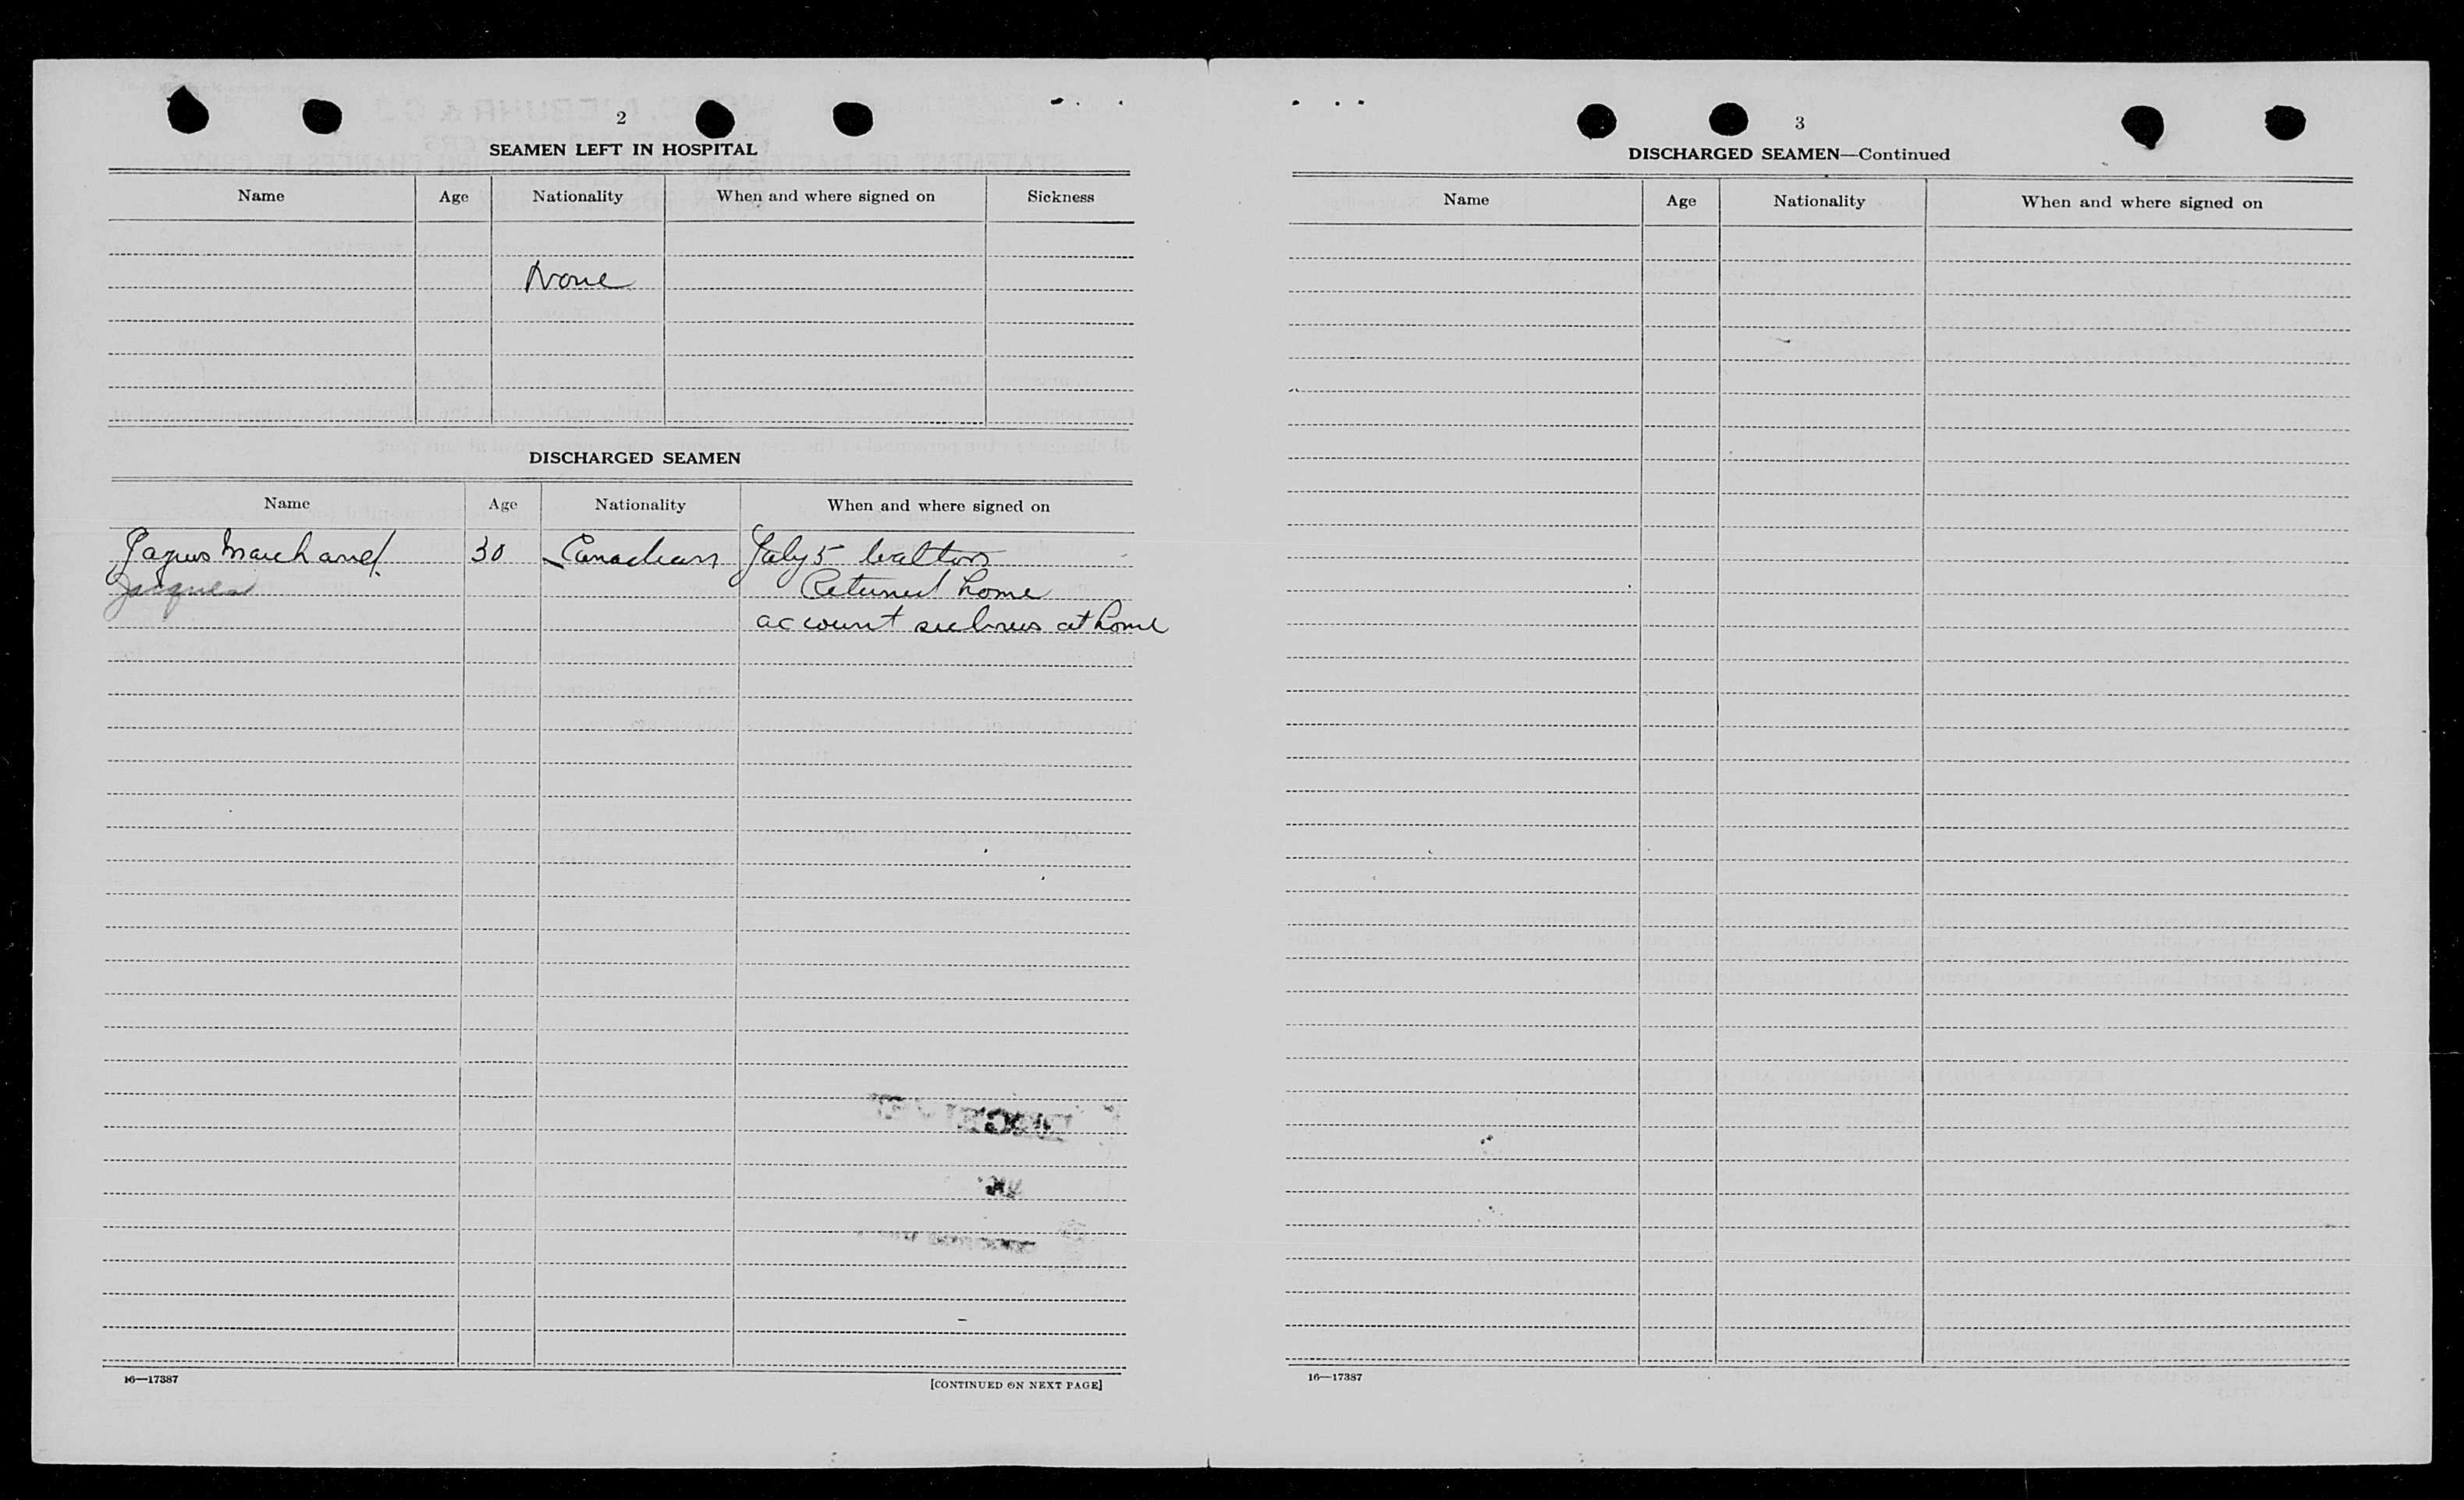 2
SEAMEN LEFT IN HOSPITAL
Name Age Nationality When and where signed on Sickness
None
DISCHARGED SEAMEN
Name Age Nationality When and where signed on
Jaques Marchand 30 Canadian July 5 Walton
Jacques Returned home
account sickness at home
16—17387
[CONTINUED ON NEXT PAGE]
3
DISCHARGED SEAMEN—Continued
Name Age Nationality When and where signed on
16—17387